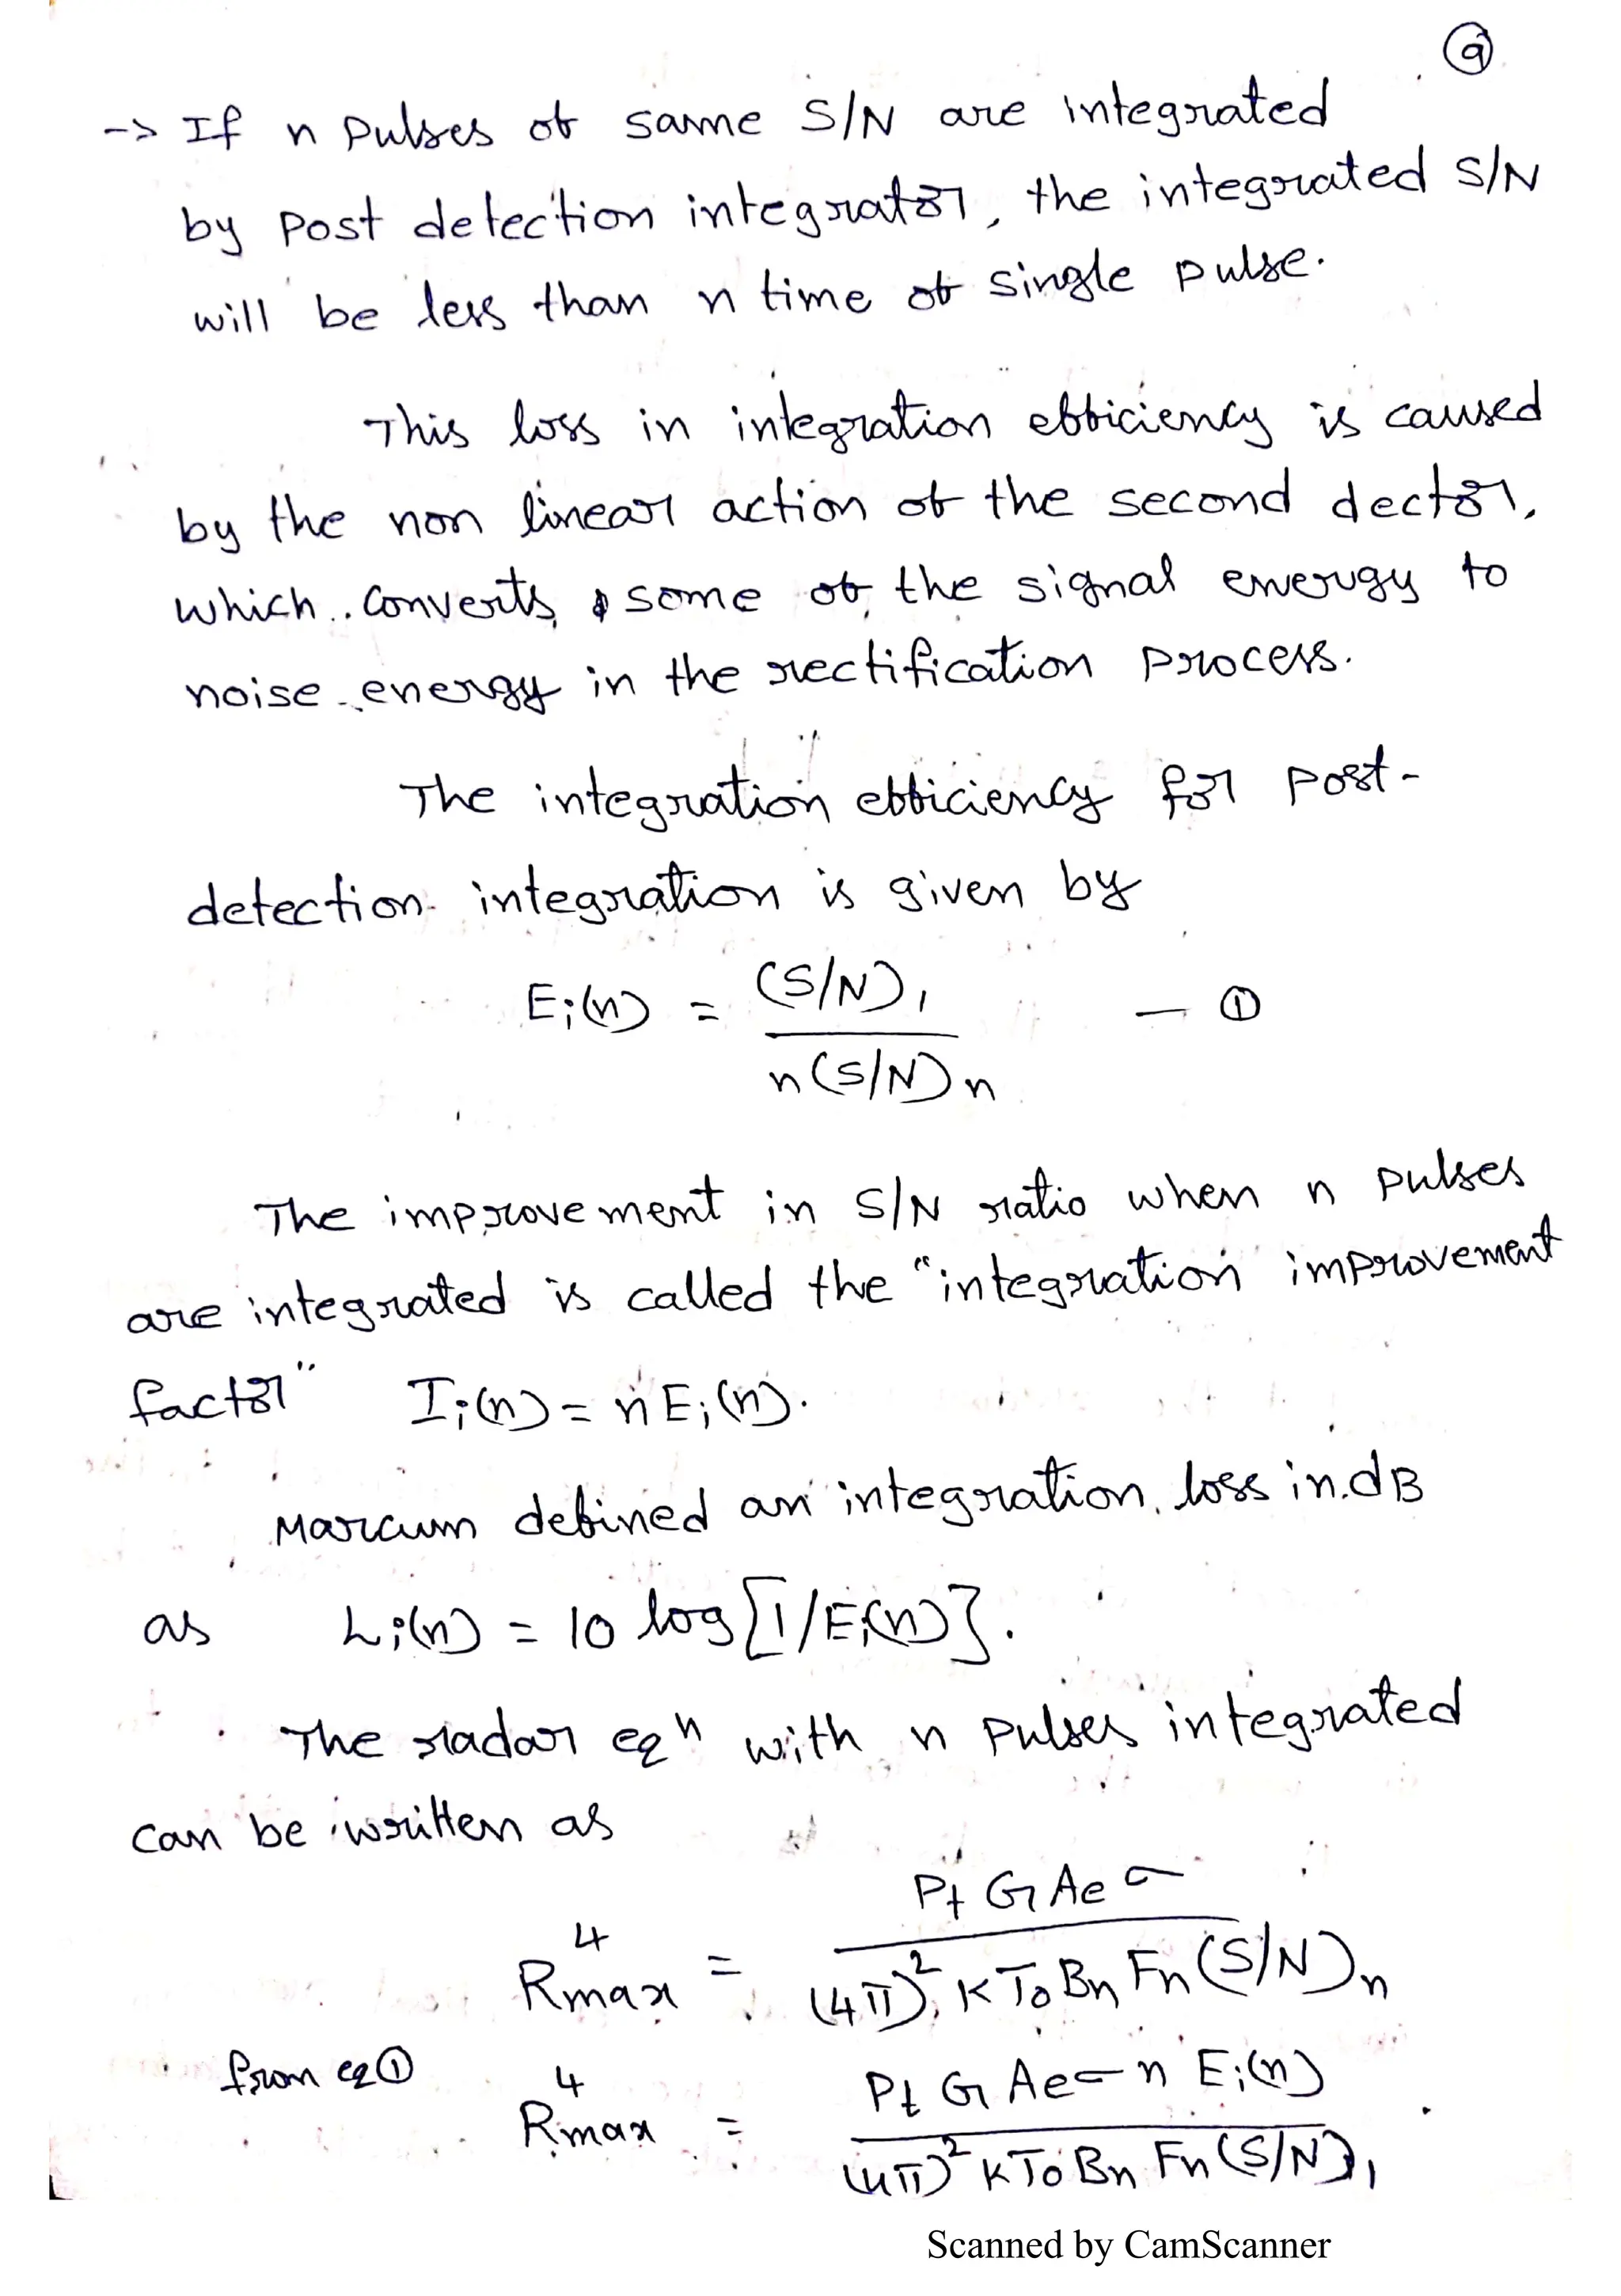 9
-> If n pulses of same S/N are integrated
by post detection integrator, the integrated S/N
will be less than n time of single pulse.
This loss in integration efficiency is caused
by the non linear action of the second dector,
which converts some of the signal energy to
noise energy in the rectification process.
The integration efficiency for post-
detection integration is given by
Ei(n) = (S/N)1 / n(S/N)n — ①
The improvement in S/N ratio when n pulses
are integrated is called the "integration improvement
factor" Ii(n) = n Ei(n).
Marcum defined an integration loss in dB
as Li(n) = 10 log[1/Ei(n)].
The radar eqn with n pulses integrated
can be written as
R⁴max = Pt G Ae σ / (4π)² K To Bn Fn (S/N)n
from eq ① R⁴max = Pt G Ae σ n Ei(n) / (4π)² K To Bn Fn (S/N)1
Scanned by CamScanner